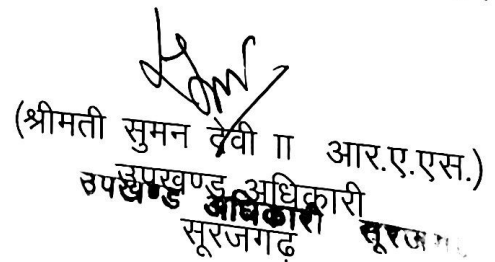 (श्रीमती सुमन देवी II आर.ए.एस.)
उपखण्ड अधिकारी
उपखण्ड अधिकारी
सूरजगढ़